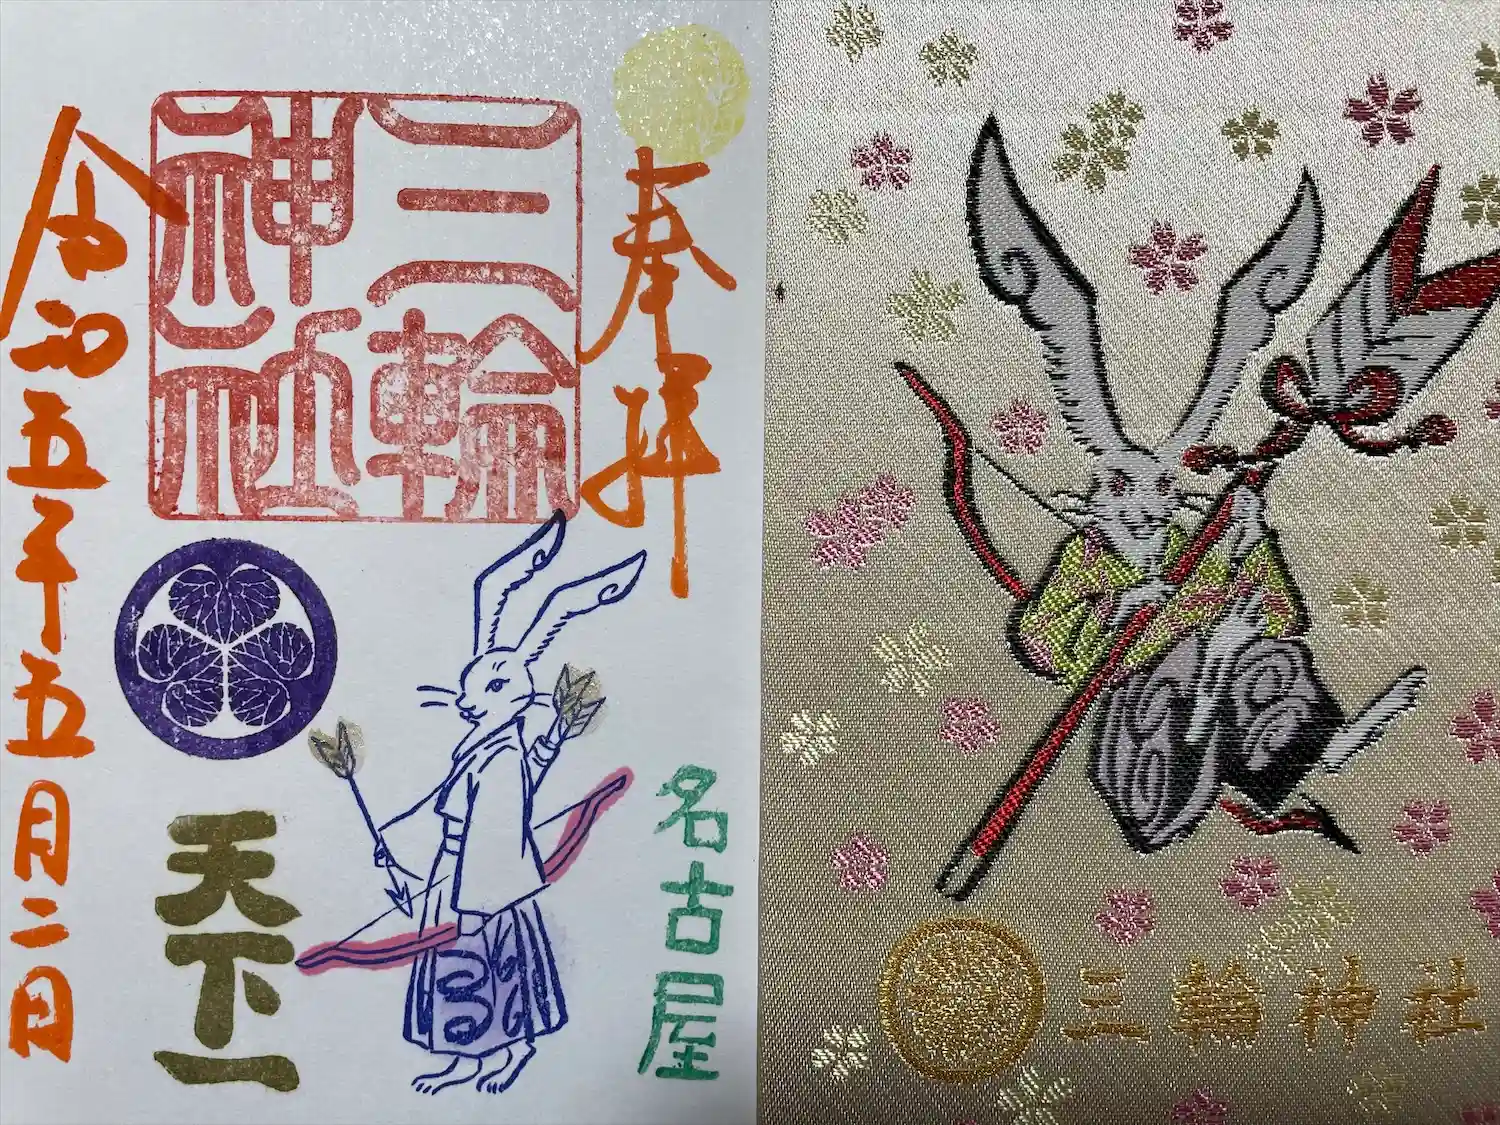 奉拝
三輪
神社
名古屋
天下一
令和五年五月二日
三輪神社